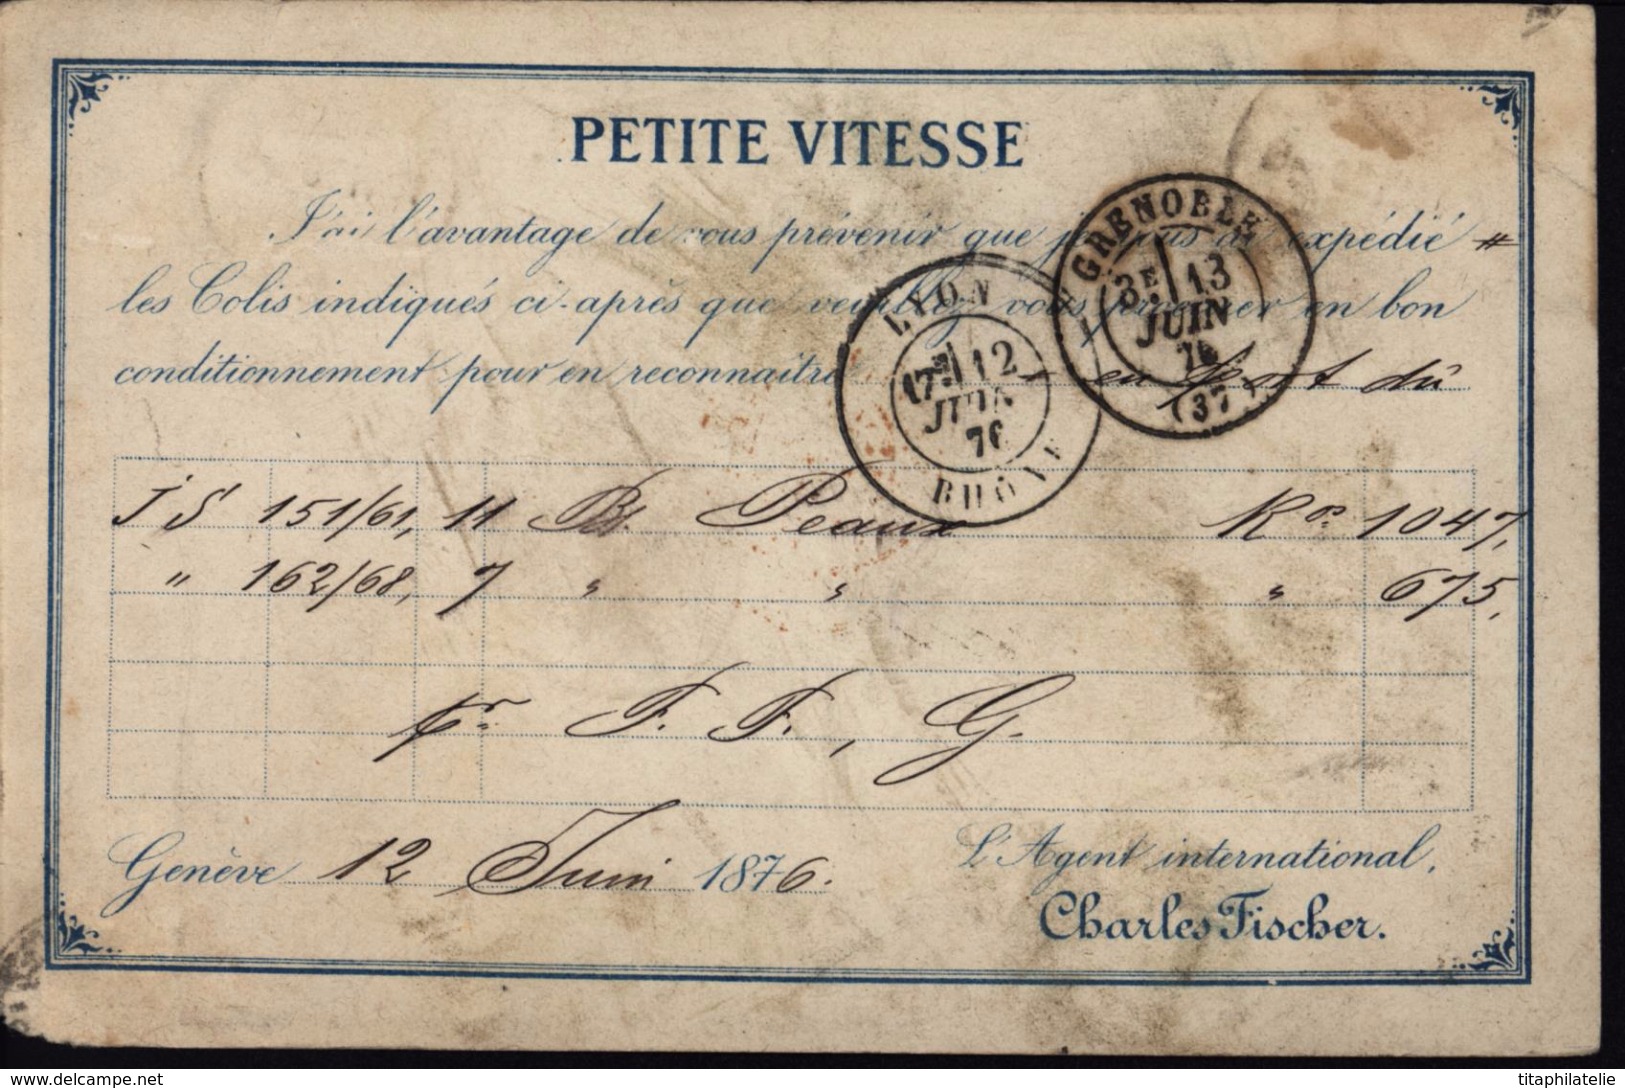 PETITE VITESSE
J'ai l'avantage de vous prévenir que je vous ai expédié
les Colis indiqués ci-après que veuillez vous procurer en bon
conditionnement pour en reconnaître en port dû
GRENOBLE
3E 13
JUIN
76
(37)
LYON
12
JUIN
76
RHÔNE
J S 151/61, 11 Bs. Peaux Ko. 1047,
" 162/68, 7 " " " 675,
pr F. F., G.
Genève 12 Juin 1876.
L'Agent international,
Charles Fischer.
delcampe.net
titaphilatelie